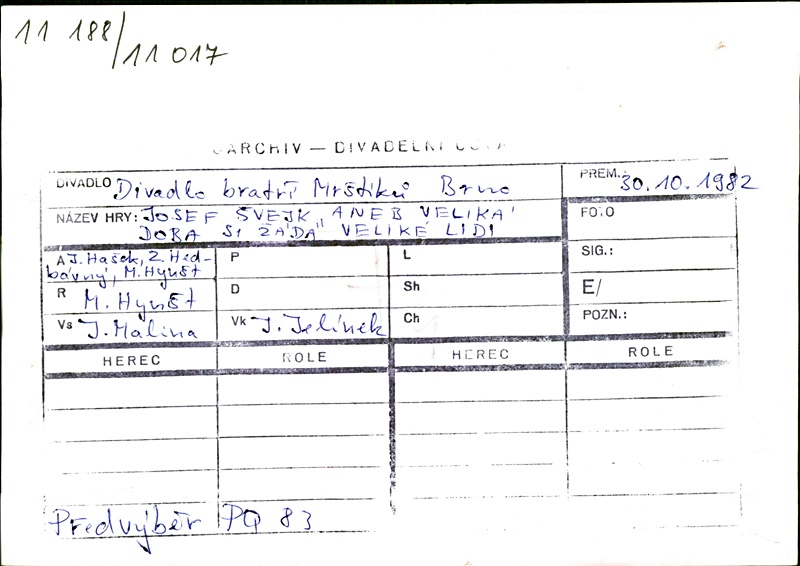 11 188/
11 017
ARCHIV — DIVADELNÍ
DIVADLO Divadlo bratří Mrštíků Brno
PREM.: 30.10.1982
NÁZEV HRY: JOSEF ŠVEJK „ANEB VELIKÁ
DOBA SI ŽÁDÁ" VELIKÉ LIDI
FOTO
A J. Hašek, Z. Hed-
bávný, M. Hynšt
P
L
SIG.:
R M. Hynšt
D
Sh
E/
Vs J. Malina
Vk J. Jelínek
Ch
POZN.:
HEREC ROLE HEREC ROLE
Předvýběr PQ 83